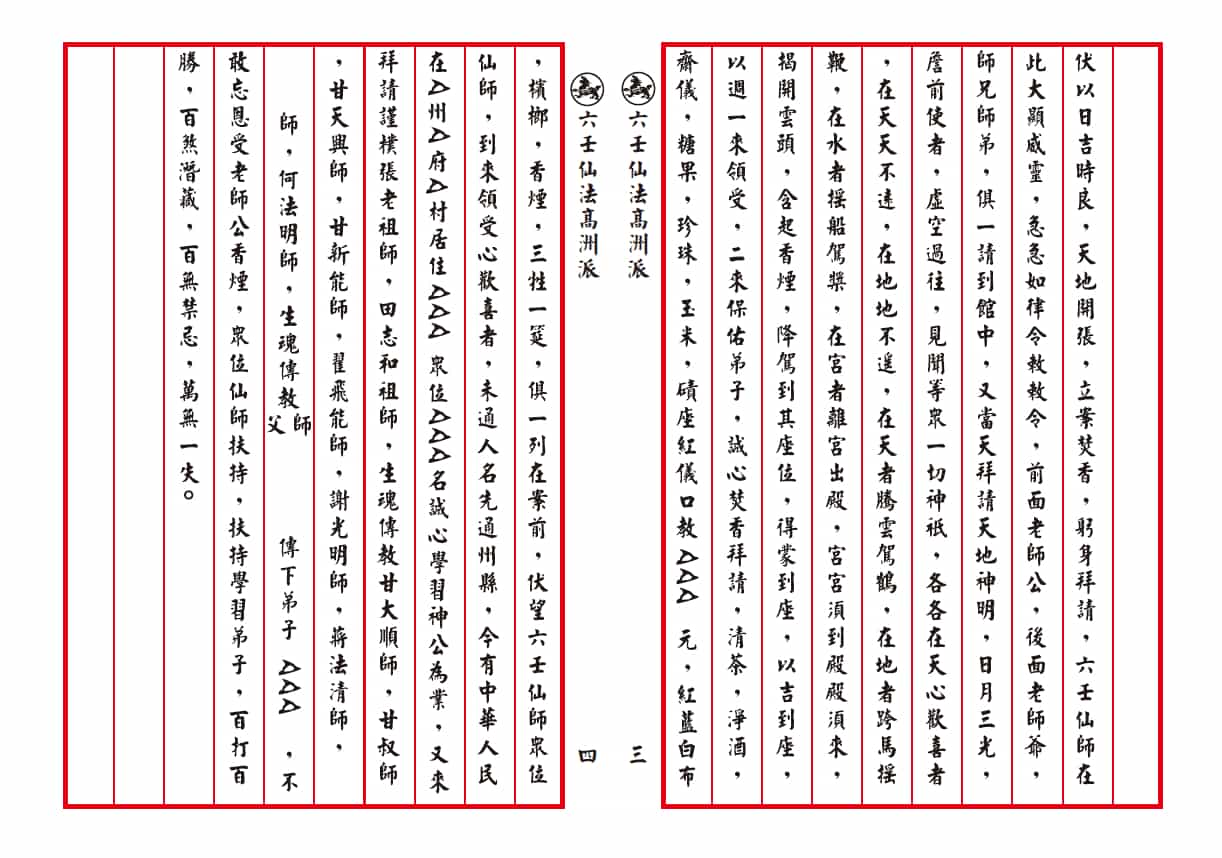 伏以日吉時良，天地開張，立案焚香，躬身拜請，六壬仙師在
此大顯威靈，急急如律令敕敕令，前面老師公，後面老師爺，
師兄師弟，俱一請到館中，又當天拜請天地神明，日月三光，
詹前使者，虛空過往，見聞等眾一切神祇，各各在天心歡喜者
，在天天不遠，在地地不遥，在天者騰雲駕鶴，在地者跨馬摇
鞭，在水者摇船駕槳，在宮者離宮出殿，宮宮須到殿殿須來，
揭開雲頭，含起香煙，降駕到其座位，得蒙到座，以吉到座，
以週一來領受，二來保佑弟子，誠心焚香拜請，清茶，淨酒，
齋儀，糖果，珍珠，玉米，磧座紅儀口教△△△ 元，紅藍白布
六壬仙法高洲派
三
六壬仙法高洲派
四
，檳榔，香煙，三牲一筵，俱一列在案前，伏望六壬仙師眾位
仙師，到來領受心歡喜者，未通人名先通州縣，今有中華人民
在△州△府△村居住△△△ 眾位△△△名誠心學習神公為業，又來
拜請謹樸張老祖師，田志和祖師，生魂傳教甘大順師，甘叔師
，甘天興師，甘新能師，翟飛能師，謝光明師，蔣法清師，
師，何法明師，生魂傳教師父 傳下弟子 △△△ ，不
敢忘恩受老師公香煙，眾位仙師扶持，扶持學習弟子，百打百
勝，百煞潛藏，百無禁忌，萬無一失。